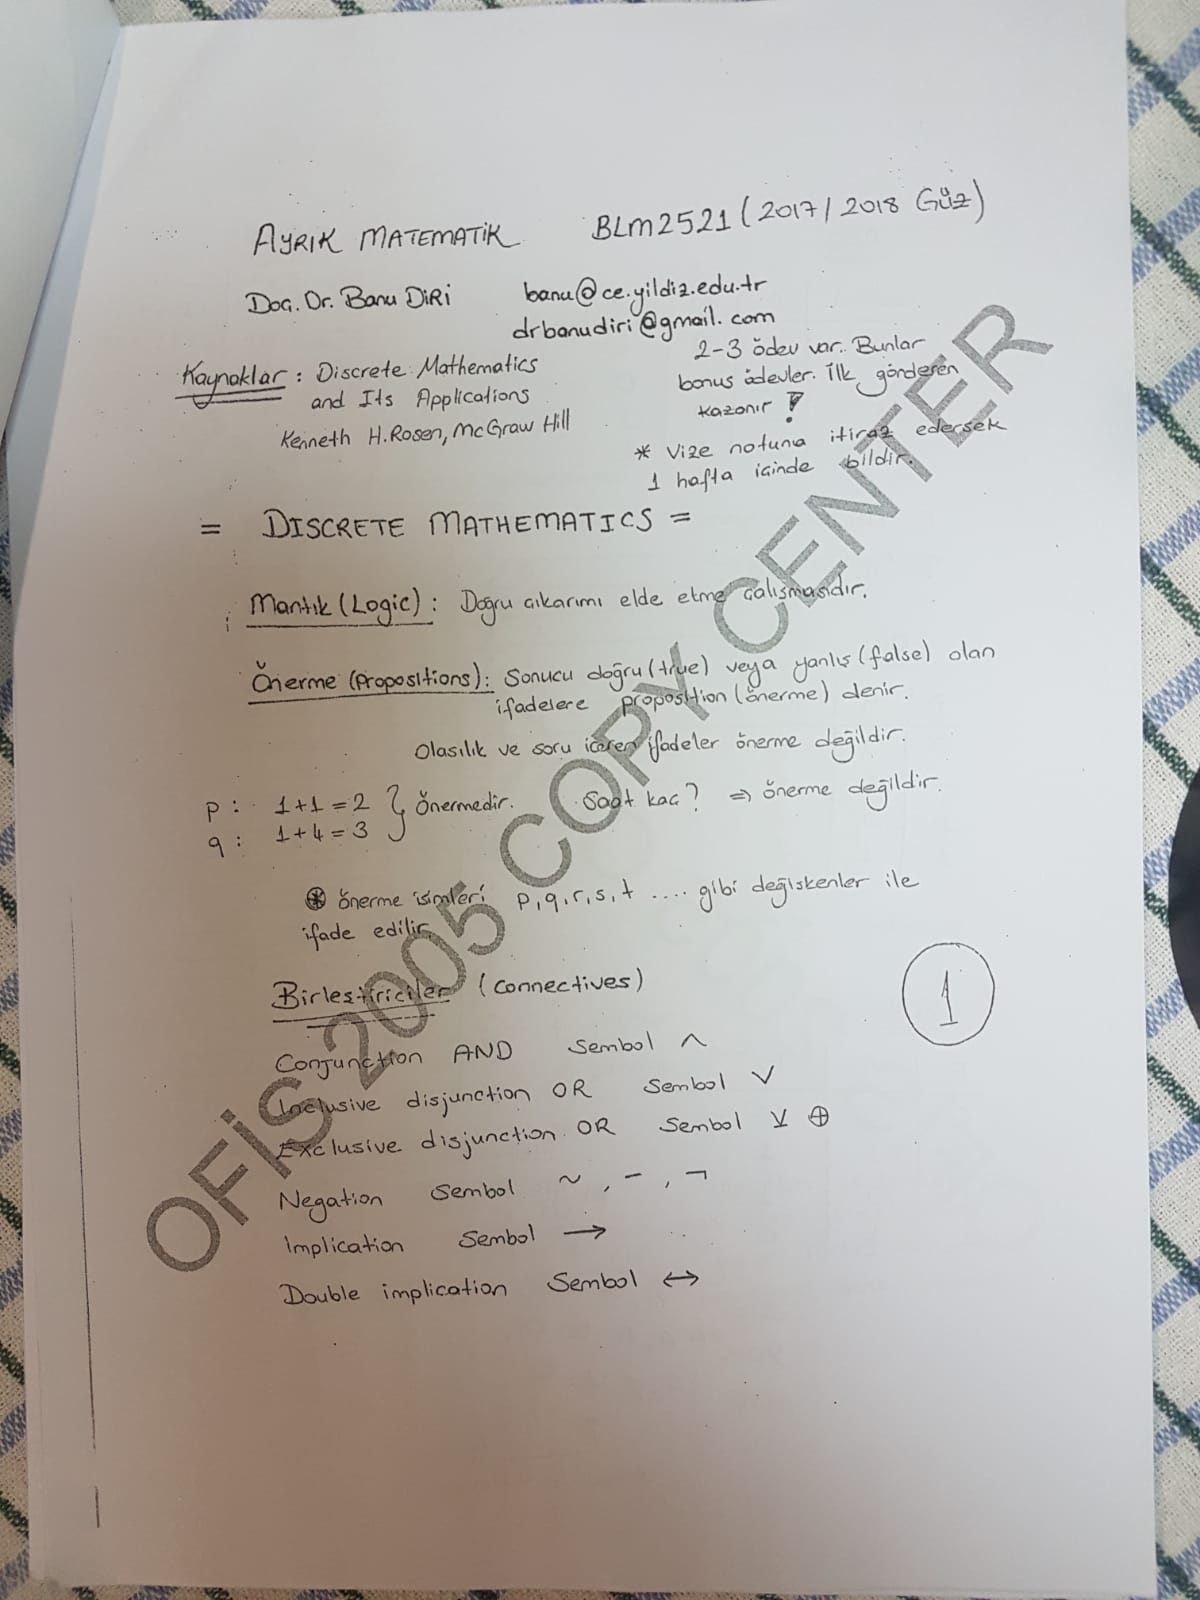 AYRIK MATEMATİK BLM2521 (2017/2018 Güz)
Doç. Dr. Banu DİRİ banu@ce.yildiz.edu.tr
drbanudiri@gmail.com
Kaynaklar : Discrete Mathematics
and Its Applications
Kenneth H. Rosen, McGraw Hill
2-3 ödev var. Bunlar
bonus ödevler. İlk gönderen
kazanır !
* Vize notuna itiraz edersek
1 hafta içinde bildir.
= DISCRETE MATHEMATICS =
Mantık (Logic) : Doğru çıkarımı elde etme çalışmasıdır.
Önerme (propositions) : Sonucu doğru (true) veya yanlış (false) olan
ifadelere proposition (önerme) denir.
Olasılık ve soru içeren ifadeler önerme değildir.
p : 1+1=2 } önermedir. Saat kaç? ⇒ önerme değildir.
q : 1+4=3
⊛ önerme isimleri p,q,r,s,t .... gibi değişkenler ile
ifade edilir
Birleştiriciler (connectives)
1
Conjunction AND Sembol ∧
Inclusive disjunction OR Sembol ∨
Exclusive disjunction OR Sembol ⊻ ⊕
Negation Sembol ~ , - , ¬
Implication Sembol →
Double implication Sembol ↔
OFİS 2005 COPY CENTER